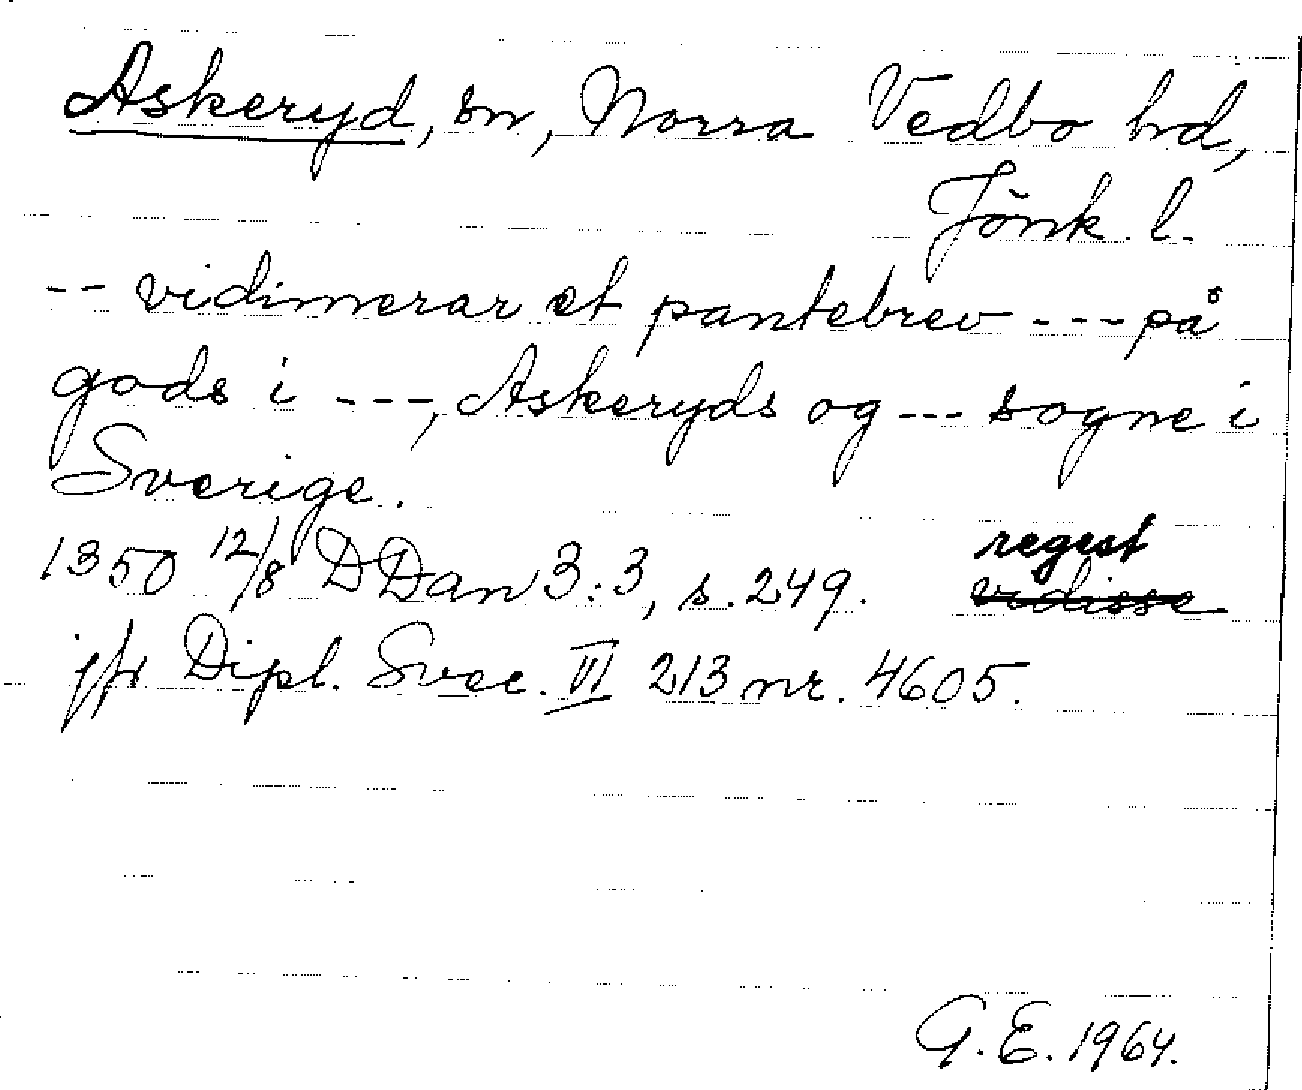 Askeryd, sn, Norra Vedbo hd,
Jönk. l.
-- vidimerar et pantebrev --- på
gods i ---, Askeryds og --- sogne i
Sverige.
1350 12/8 DDan 3:3, s. 249. regest
vidisse
jfr Dipl. Svec. VI 213 nr. 4605.
G.E. 1964.